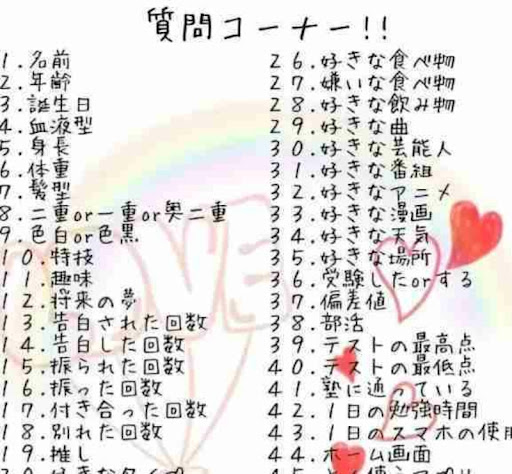 質問コーナー!!
1.名前
2.年齢
3.誕生日
4.血液型
5.身長
6.体重
7.髪型
8.二重or一重or奥二重
9.色白or色黒
10.特技
11.趣味
12.将来の夢
13.告白された回数
14.告白した回数
15.振られた回数
16.振った回数
17.付き合った回数
18.別れた回数
19.推し
26.好きな食べ物
27.嫌いな食べ物
28.好きな飲み物
29.好きな曲
30.好きな芸能人
31.好きな番組
32.好きなアニメ
33.好きな漫画
34.好きな天気
35.好きな場所
36.受験したorする
37.偏差値
38.部活
39.テストの最高点
40.テストの最低点
41.塾に通っている
42.1日の勉強時間
43.1日のスマホの使用
44.ホーム画面
LOVE